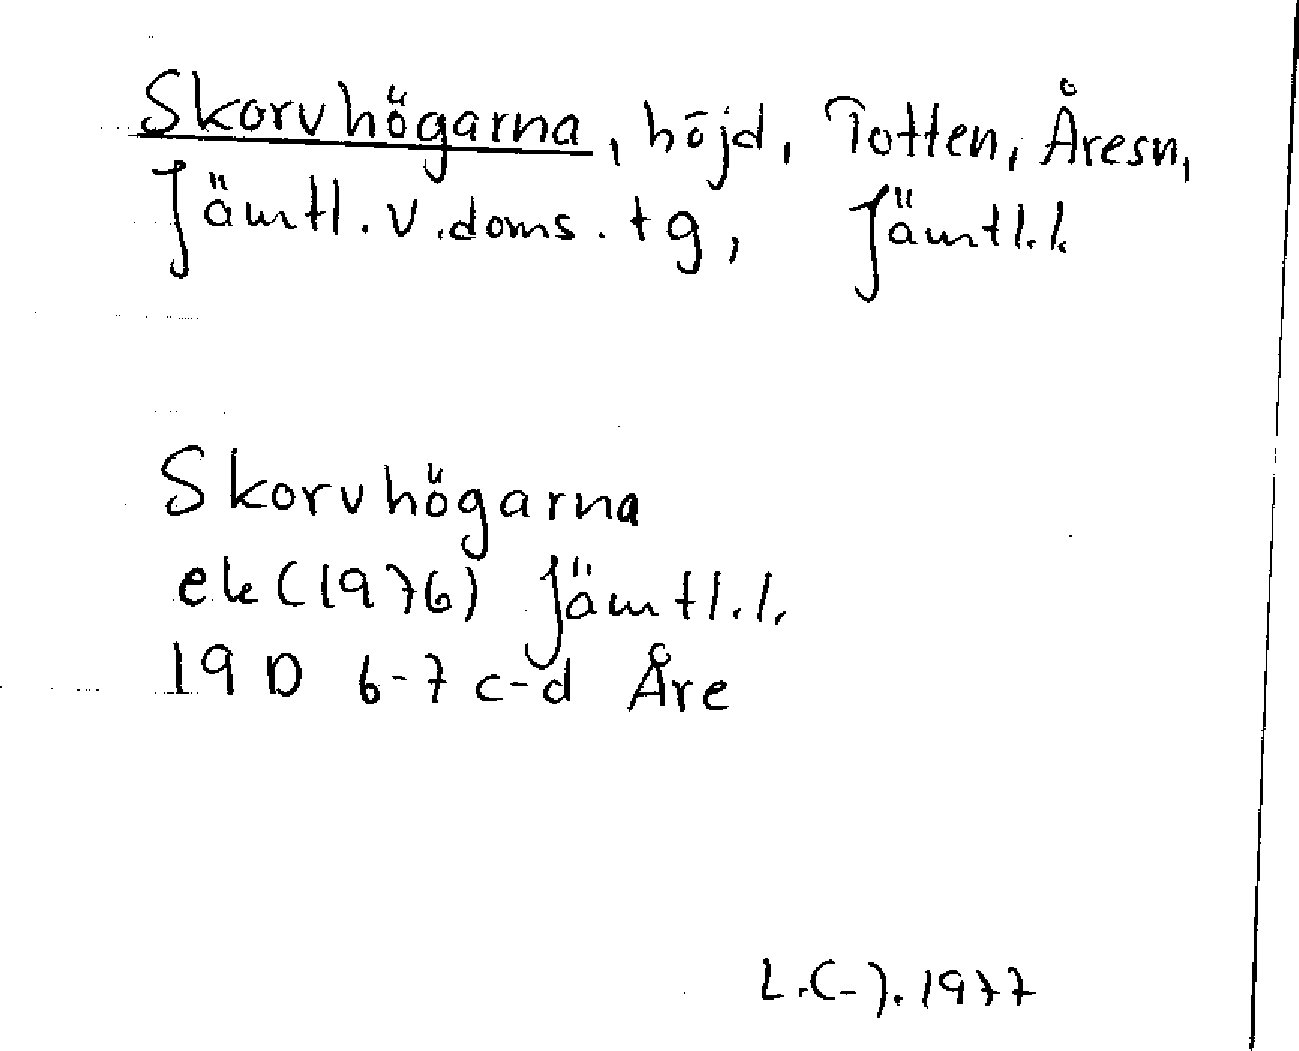 Skorvhögarna, höjd, Totten, Åresn,
Jämtl. v. doms. tg, Jämtl. l.
Skorvhögarna
ek (1976) Jämtl. l.
19 D 6-7 c-d Åre
L.C-J. 1977